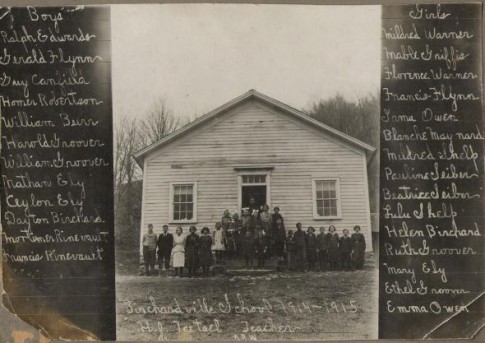 Boys
Ralph Edwards
Gerald Flynn
Guy Canfield
Homer Robertson
William Beirr
Harold Groover
William Groover
Nathan Ely
Ceylon Ely
Dayton Birchard
Mortimer Rinevault
Francis Rinevault
Birchardville School 1914-1915
Teacher
Girls
Mildred Warner
Mable Griffis
Florence Warner
Francis Flynn
Irma Owen
Blanche Maynard
Mildred Shelp
Pauline Seiber
Beatrice Seiber
Lulu Shelp
Helen Birchard
Ruth Groover
Mary Ely
Ethel Groover
Emma Owen